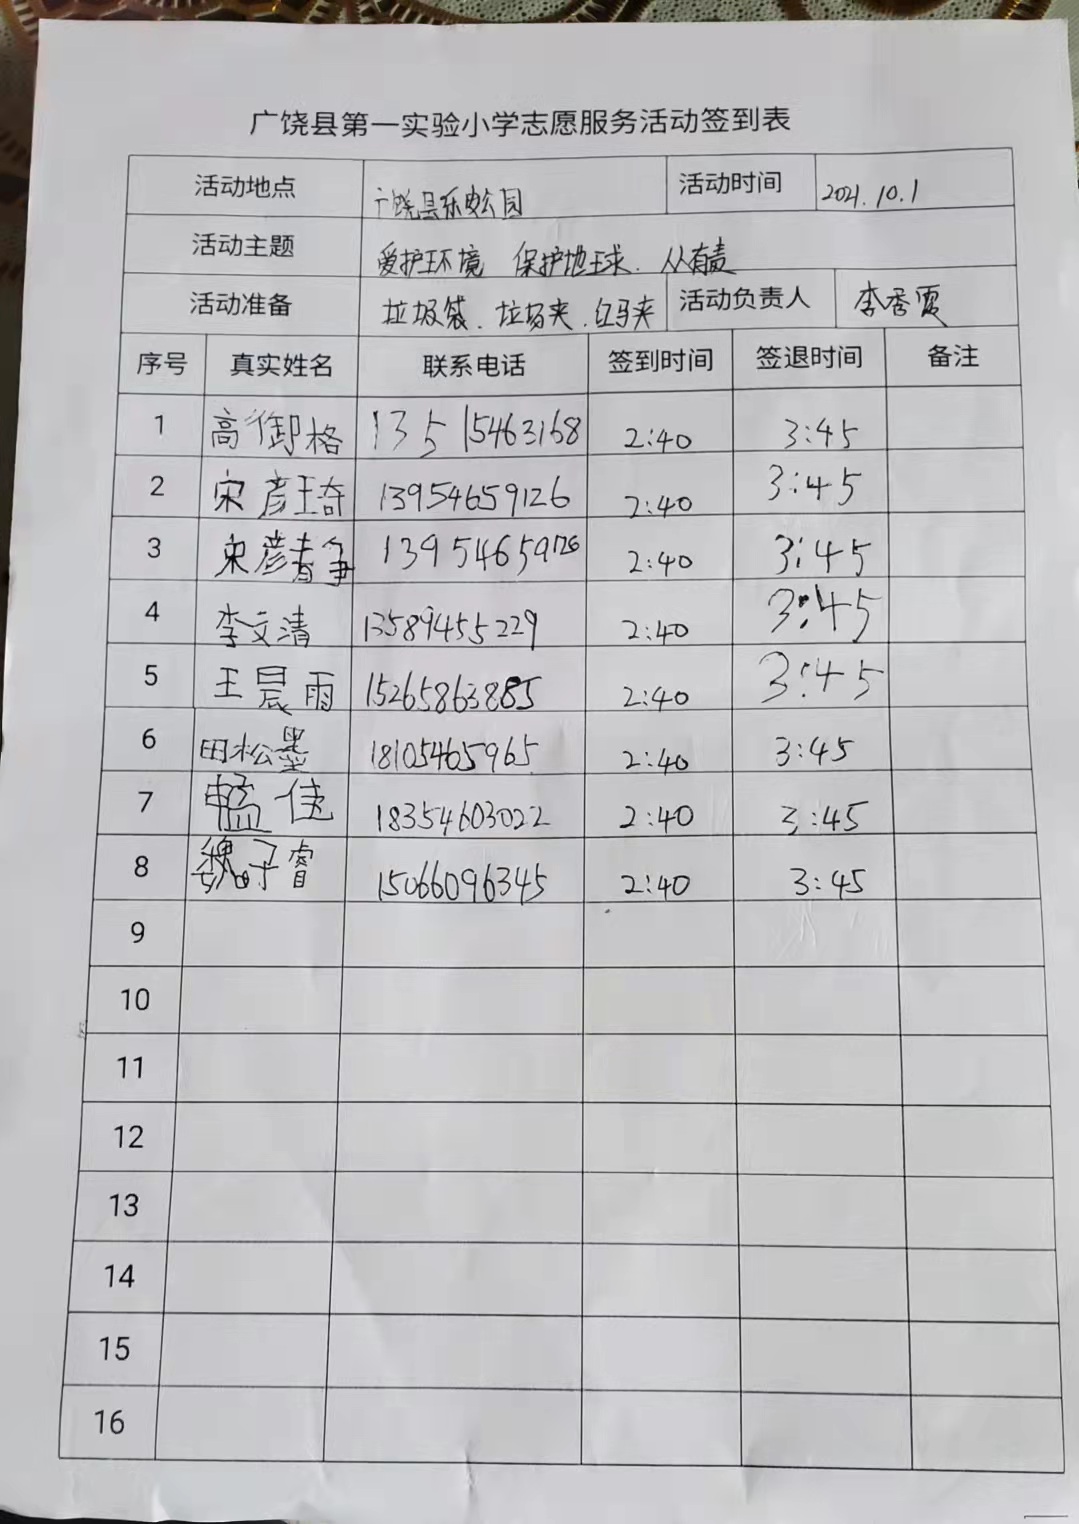 广饶县第一实验小学志愿服务活动签到表
活动地点 广饶县乐安公园 活动时间 2021.10.1
活动主题 爱护环境 保护地球.人人有责
活动准备 垃圾袋.垃圾夹.红马夹 活动负责人 李秀霞
序号 真实姓名 联系电话 签到时间 签退时间 备注
1 高御格 13515463168 2:40 3:45
2 宋彦琦 13954659126 2:40 3:45
3 宋彦静 13954659126 2:40 3:45
4 李文清 13589455229 2:40 3:45
5 王晨雨 15265863885 2:40 3:45
6 田松墨 18105465965 2:40 3:45
7 18354603022 2:40 3:45
8 魏子睿 15066096345 2:40 3:45
9
10
11
12
13
14
15
16